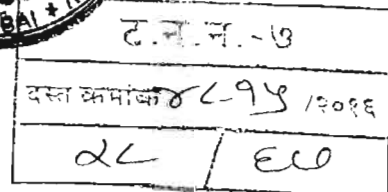 BAI ★
ट.न.न.-७
दस्त क्रमांक ४८१५ /२०१६
२८ / ६७